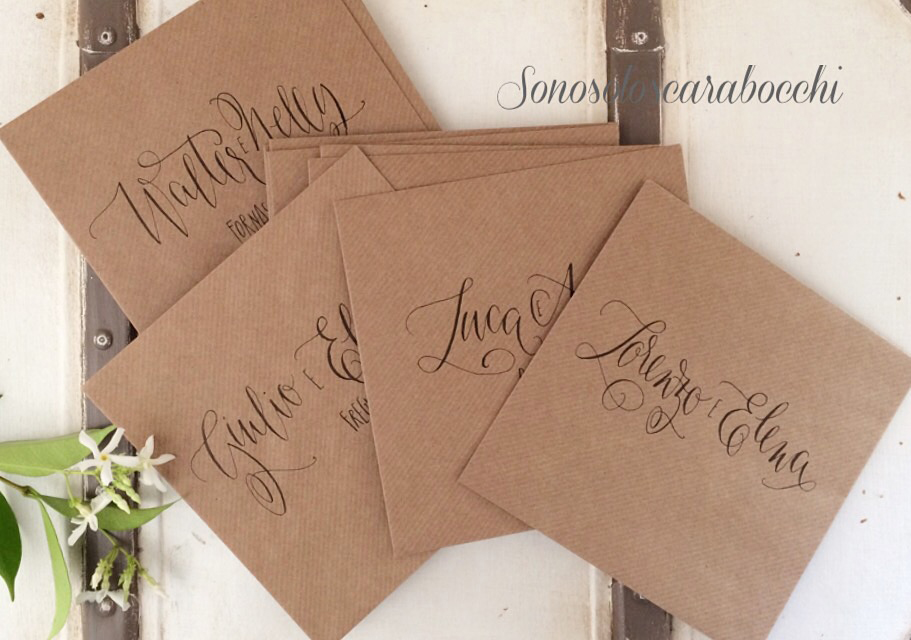 Sonosoloscarabocchi
Walter E Nelly
Giulio E
Luca E
Lorenzo E Elena